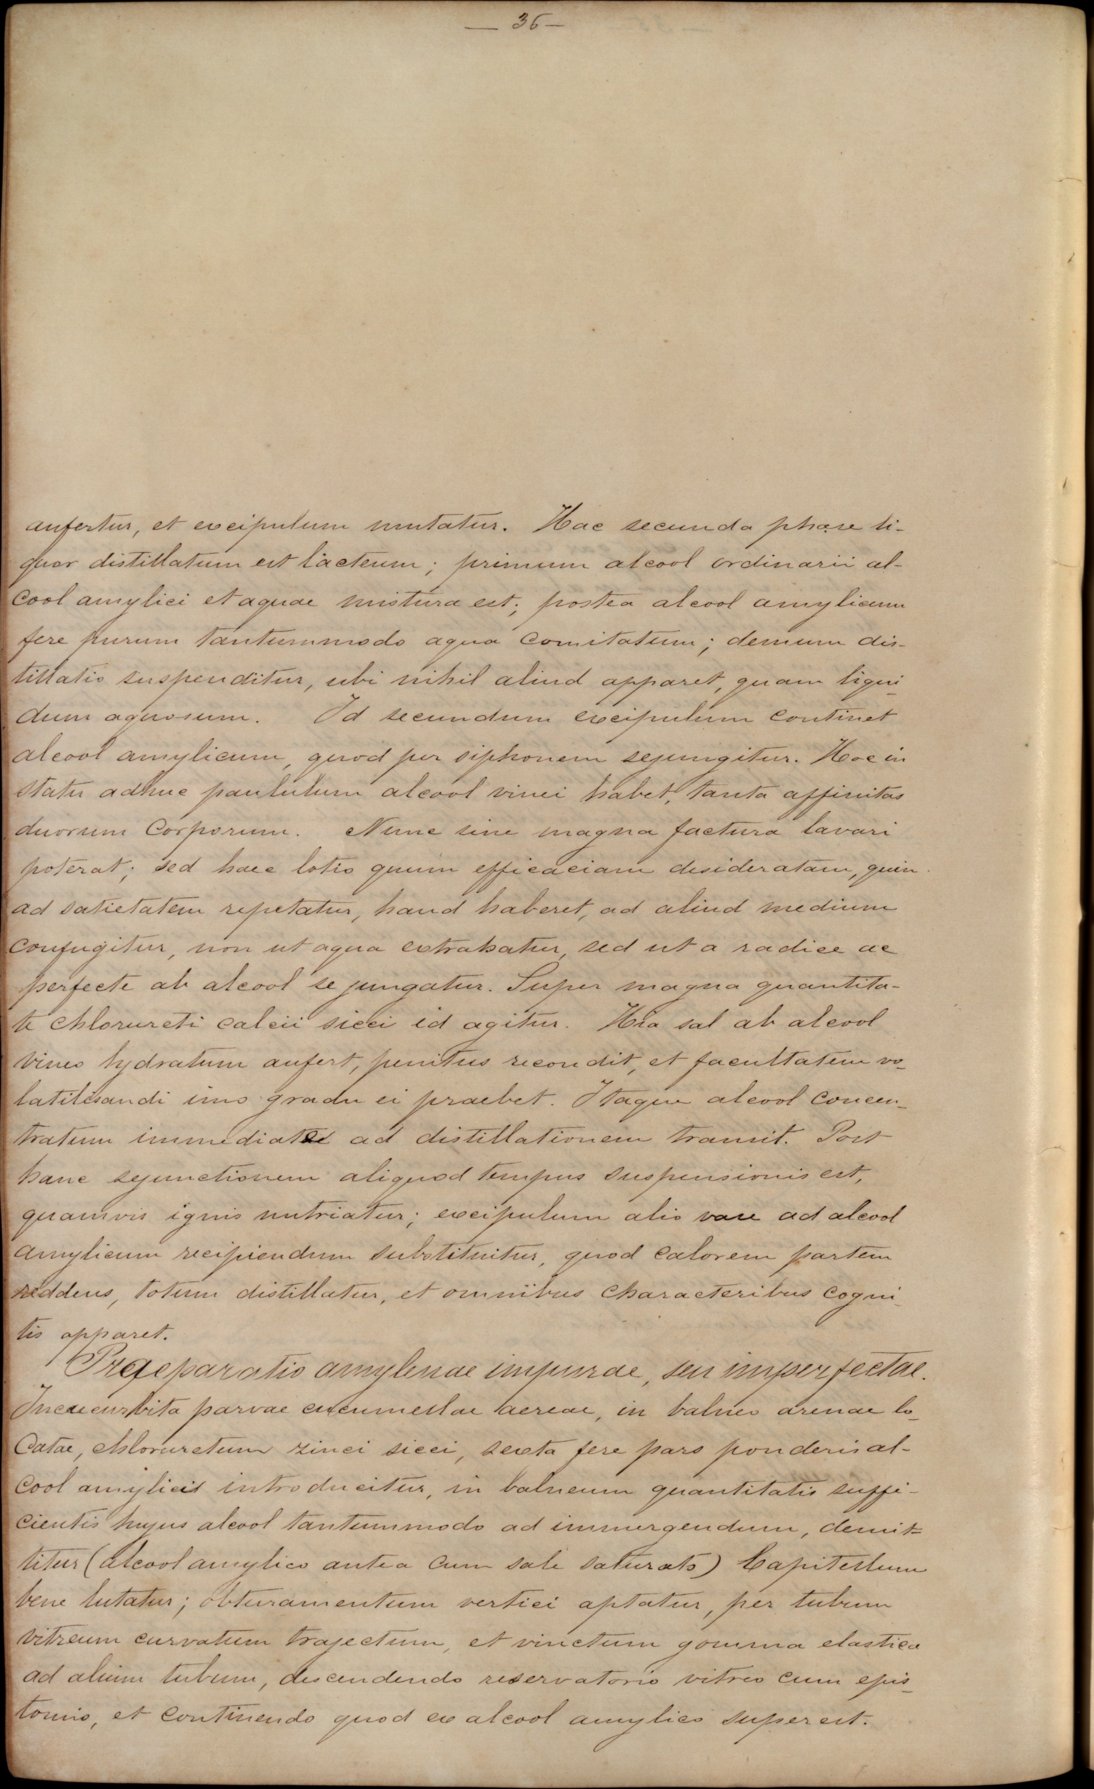 — 36 —
aufertur, et excipulum mutatur. Hac secunda phase li-
quor distillatum est lacteum; primum alcool ordinarii al-
cool amylici et aquae mistura est; postea alcool amylicum
fere purum tantummodo aqua comitatum; demum dis-
tillatio suspenditur, ubi nihil aliud apparet, quam liqui-
dum aquosum. Id secundum excipulum continet
alcool amylicum, quod per siphonem sejungitur. Hoc in
statu adhuc paululum alcool vinei habet, tanta affinitas
duorum corporum. Nunc sine magna factura lavari
poterat; sed haec lotio quum efficaciam desideratam, quin
ad satietatem repetatur, haud haberet, ad aliud medium
confugitur, non ut aqua extrahatur, sed ut a radice ac
perfecte ab alcool sejungatur. Super magna quantita-
te chlorureti calcii sicci id agitur. Hia sal ab alcool
vineo hydratum aufert, penitus recondit, et facultatem vo-
latilisandi imo gradu ei praebet. Itaque alcool concen-
tratum immediate ad distillationem transit. Post
hanc sejunctionem aliquod tempus suspensionis est,
quamvis ignis nutriatur; excipulum alio vase ad alcool
amylicum recipiendum substituitur, quod calorem partem
reddens, totum distillatur, et omnibus characteribus cogni-
tis apparet.
Praeparatio amylenae impurae, seu imperfectae.
In cucurbita parvae cucumellae aereae, in balneo arenae lo-
catae, chloruretum zinci sicci, sexta fere pars ponderis al-
cool amylici introducitur, in balneum quantitatis suffi-
cientis hujus alcool tantummodo ad immergendum, demit-
titur (alcool amylico antea cum sale saturato) Capitellum
bene lutatur; obturamentum vertici aptatur, per tubum
vitreum curvatum trajectum, et vinctum gomma elastica
ad alium tubum, descendendo reservatorio vitreo cum epis-
tomio, et continendo quod ex alcool amylico superest.